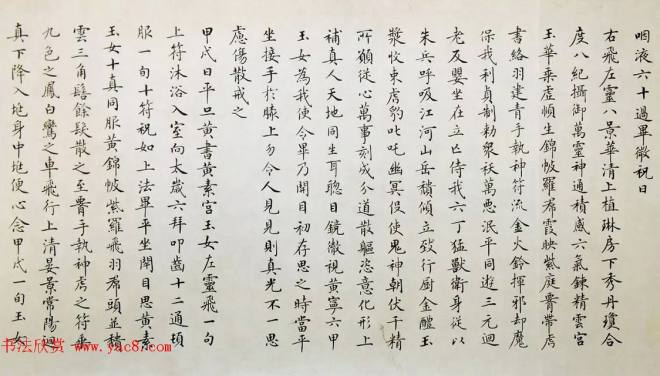 咽液六十過畢微祝曰
右飛左靈八景華清上植琳房下秀丹瓊合
度八紀攝御萬靈神通積感六氣鍊精雲宮
玉華乘虛順生錦帔羅帬霞映紫庭腰帶虎
書絡羽建青手執神符流金火鈴揮邪却魔
保我利貞制勑眾祅萬惡泯平同遊三元迴
老反嬰坐在立亡侍我六丁猛獸衛身從以
朱兵呼吸江河山岳頹傾立致行廚金醴玉
漿收束虎豹叱吒幽冥役使鬼神朝伏千精
所願從心萬事剋成分道散軀恣意化形上
補真人天地同生耳聰目鏡徹視黃寧六甲
玉女為我使令畢乃開目初存思之時當平
坐接手於膝上勿令人見見則真光不一思
慮傷散戒之
甲戌日平旦黃書黃素宮玉女左靈飛一旬
上符沐浴入室向太歲六拜叩齒十二通頓
服一旬十符祝如上法畢平坐閉目思黃素
玉女十真同服黃錦帔紫羅飛羽帬頭並積
雲三角髻餘髮散之至腰手執神虎之符乘
九色之鳳白鸞之車飛行上清晏景常陽迴
真下降入坨身中坨便心念甲戌一旬玉女
书法欣赏 www.yac8.com